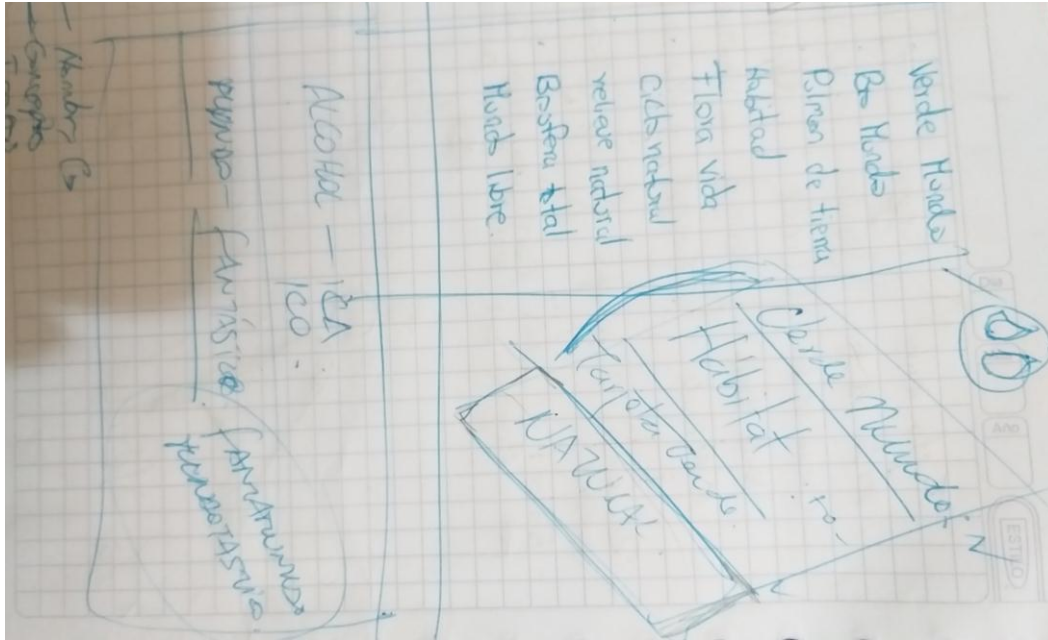 Verde Mundo
Bio Mundo
Pulmon de tierra
Habitad
Flora vida
Ciclo natural
relieve natural
Biosfera total
Mundo libre.
Verde Mundo
Habitat
Tarjeta Verde
ALCOHOL — ICA
ICO
MUNDO - FANTÁSICO
FANTAMUNDO
— Nombre
— Concepto
ESTILO